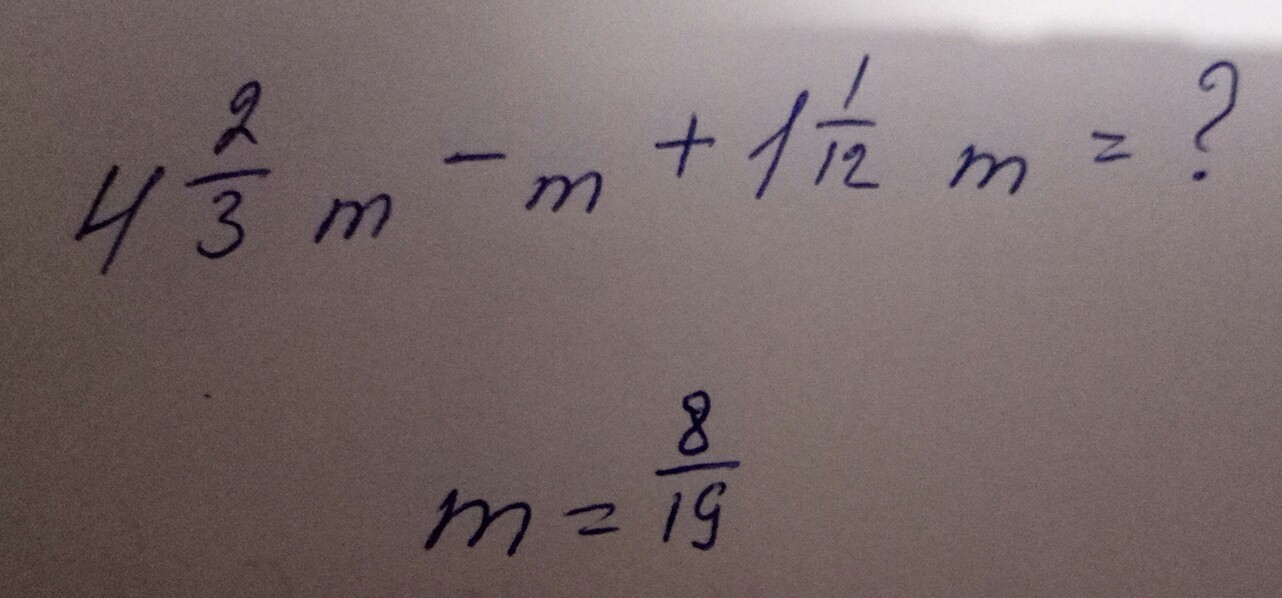 4 2/3 m - m + 1 1/12 m = ?
m = 8/19